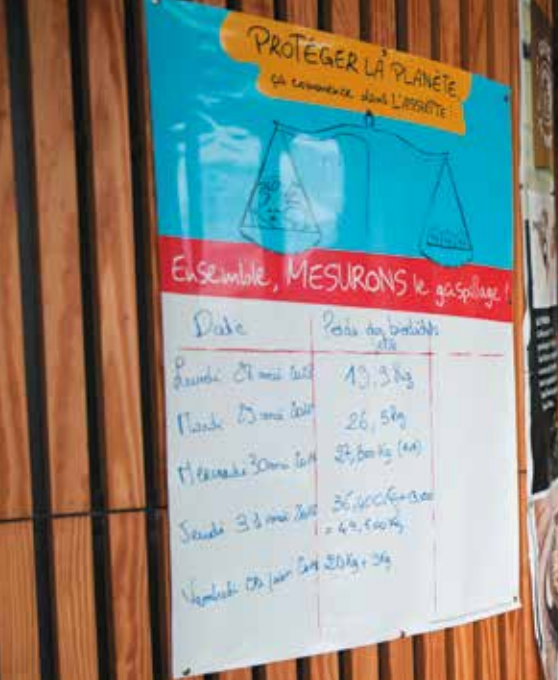 PROTÉGER LA PLANÈTE
ça commence dans L'ASSIETTE!
Ensemble, MESURONS le gaspillage!
Date Poids des biodéchets
Lundi 28 mai 13,9 Kg
Mardi 29 mai 26,5 Kg
Mercredi 30 mai 27,800 Kg
Jeudi 31 mai 36,400 Kg +
= 49,500 Kg
Vendredi juin 20 Kg + 3 Kg